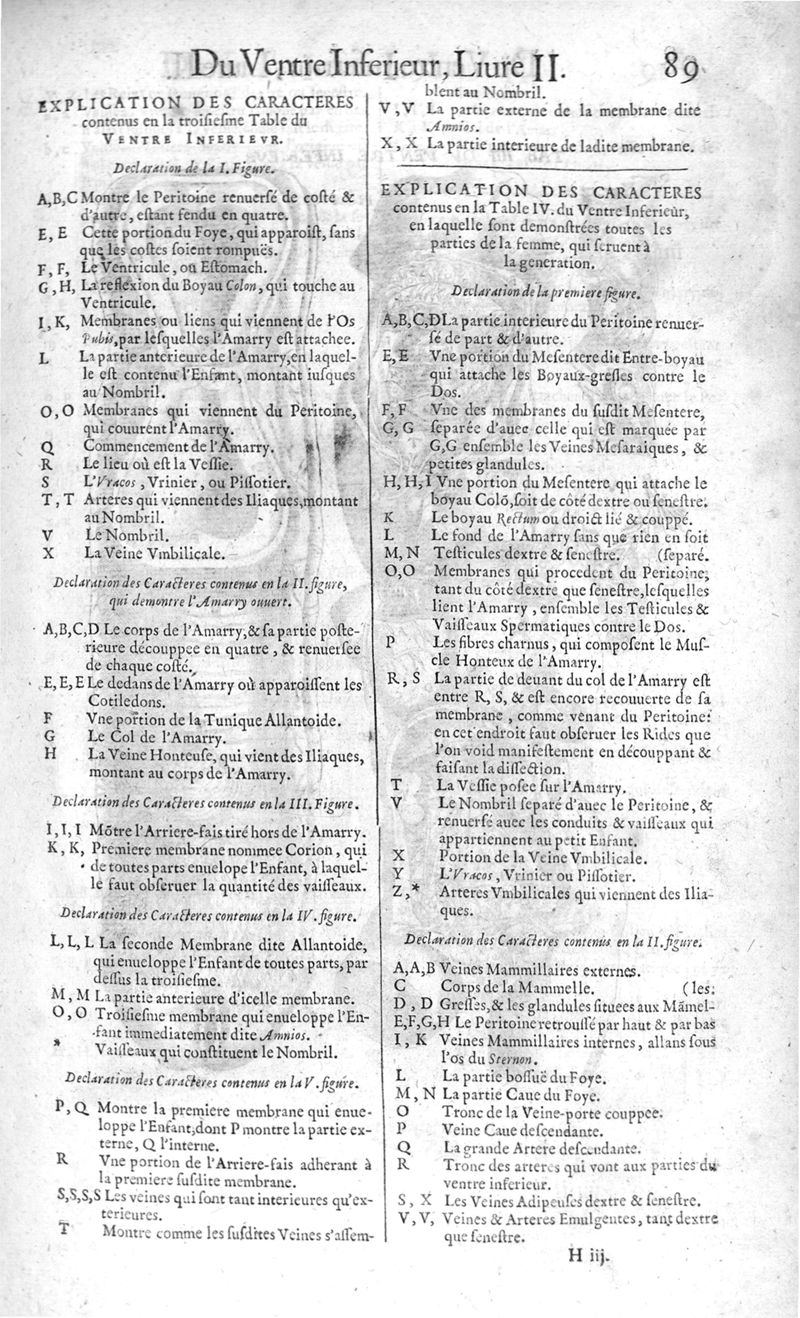 Du Ventre Inferieur, Liure II. 89
EXPLICATION DES CARACTERES
contenus en la troisiesme Table du
VENTRE INFERIEVR.
Declaration de la I. Figure.
A,B,C Montre le Peritoine renuersé de costé &
d'autre, estant fendu en quatre.
E, E Cette portion du Foye, qui apparoist, sans
que les costes soient rompuës.
F, F, Le Ventricule, ou Estomach.
G, H, La reflexion du Boyau Colon, qui touche au
Ventricule.
I, K, Membranes ou liens qui viennent de l'Os
Pubis, par lesquelles l'Amarry est attachee.
L La partie anterieure de l'Amarry, en laquel-
le est contenu l'Enfant, montant iusques
au Nombril.
O, O Membranes qui viennent du Peritoine,
qui couurent l'Amarry.
Q Commencement de l'Amarry.
R Le lieu où est la Vessie.
S L'Vracos, Vrinier, ou Pissotier.
T, T Arteres qui viennent des Iliaques, montant
au Nombril.
V Le Nombril.
X La Veine Vmbilicale.
Declaration des Caracteres contenus en la II. figure,
qui demontre l'Amarry ouuert.
A,B,C,D Le corps de l'Amarry, & sa partie poste-
rieure découppee en quatre, & renuersee
de chaque costé.
E, E, E Le dedans de l'Amarry où apparoissent les
Cotiledons.
F Vne portion de la Tunique Allantoide.
G Le Col de l'Amarry.
H La Veine Honteuse, qui vient des Iliaques,
montant au corps de l'Amarry.
Declaration des Caracteres contenus en la III. Figure.
I, I, I Mõtre l'Arriere-fais tiré hors de l'Amarry.
K, K, Premiere membrane nommee Corion, qui
de toutes parts enuelope l'Enfant, à laquel-
le faut obseruer la quantité des vaisseaux.
Declaration des Caracteres contenus en la IV. figure.
L, L, L La seconde Membrane dite Allantoide,
qui enueloppe l'Enfant de toutes parts, par
dessus la troisiesme.
M, M La partie anterieure d'icelle membrane.
O, O Troisiesme membrane qui enueloppe l'En-
fant immediatement dite Amnios.
* Vaisseaux qui constituent le Nombril.
Declaration des Caracteres contenus en la V. figure.
P, Q Montre la premiere membrane qui enue-
loppe l'Enfant, dont P montre la partie ex-
terne, Q l'interne.
R Vne portion de l'Arriere-fais adherant à
la premiere susdite membrane.
S,S,S,S Les veines qui sont tant interieures qu'ex-
terieures.
T Montre comme les susdites Veines s'assem-
blent au Nombril.
V, V La partie externe de la membrane dite
Amnios.
X, X La partie interieure de ladite membrane.
EXPLICATION DES CARACTERES
contenus en la Table IV. du Ventre Inferieur,
en laquelle sont demonstrées toutes les
parties de la femme, qui seruent à
la generation.
Declaration de la premiere figure.
A,B,C,D La partie interieure du Peritoine renuer-
sé de part & d'autre.
E, E Vne portion du Mesentere dit Entre-boyau
qui attache les Boyaux-gresles contre le
Dos.
F, F Vne des membranes du susdit Mesentere,
G, G separée d'auec celle qui est marquée par
G, G ensemble les Veines Mesaraiques, &
petites glandules.
H, H, I Vne portion du Mesentere qui attache le
boyau Colõ, soit de côté dextre ou senestre.
K Le boyau Rectum ou droict lié & couppé.
L Le fond de l'Amarry sans que rien en soit
M, N Testicules dextre & senestre. (separé.
O,O Membranes qui procedent du Peritoine,
tant du côté dextre que senestre, lesquelles
lient l'Amarry, ensemble les Testicules &
Vaisseaux Spermatiques contre le Dos.
P Les fibres charnus, qui composent le Mus-
cle Honteux de l'Amarry.
R, S La partie de deuant du col de l'Amarry est
entre R, S, & est encore recouuerte de sa
membrane, comme venant du Peritoine:
en cet endroit faut obseruer les Rides que
l'on void manifestement en découppant &
faisant la dissection.
T La Vessie posee sur l'Amarry.
V Le Nombril separé d'auec le Peritoine, &
renuersé auec les conduits & vaisseaux qui
appartiennent au petit Enfant.
X Portion de la Veine Vmbilicale.
Y L'Vracos, Vrinier ou Pissotier.
Z,* Arteres Vmbilicales qui viennent des Ilia-
ques.
Declaration des Caracteres contenus en la II. figure.
A,A,B Veines Mammillaires externes.
C Corps de la Mammelle. (les.
D, D Gresses, & les glandules situees aux Mãmel-
E,F,G,H Le Peritoine retroussé par haut & par bas
I, K Veines Mammillaires internes, allans sous
l'os du Sternon.
L La partie bossuë du Foye.
M, N La partie Caue du Foye.
O Tronc de la Veine-porte couppee.
P Veine Caue descendante.
Q La grande Artere descendante.
R Tronc des arteres qui vont aux parties du
ventre inferieur.
S, X Les Veines Adipeuses dextre & senestre.
V, V, Veines & Arteres Emulgentes, tant dextre
que senestre.
H iij.